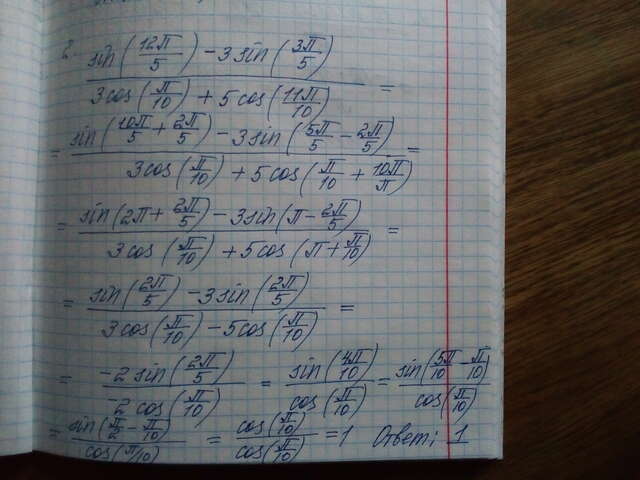 2. (sin(12π/5) - 3sin(3π/5)) / (3cos(π/10) + 5cos(11π/10)) =
= (sin(10π/5 + 2π/5) - 3sin(5π/5 - 2π/5)) / (3cos(π/10) + 5cos(π/10 + 10π/π)) =
= (sin(2π + 2π/5) - 3sin(π - 2π/5)) / (3cos(π/10) + 5cos(π + π/10)) =
= (sin(2π/5) - 3sin(2π/5)) / (3cos(π/10) - 5cos(π/10)) =
= (-2sin(2π/5)) / (-2cos(π/10)) = sin(4π/10) / cos(π/10) = sin(5π/10 - π/10) / cos(π/10)
= sin(π/2 - π/10) / cos(π/10) = cos(π/10) / cos(π/10) = 1 Ответ: 1